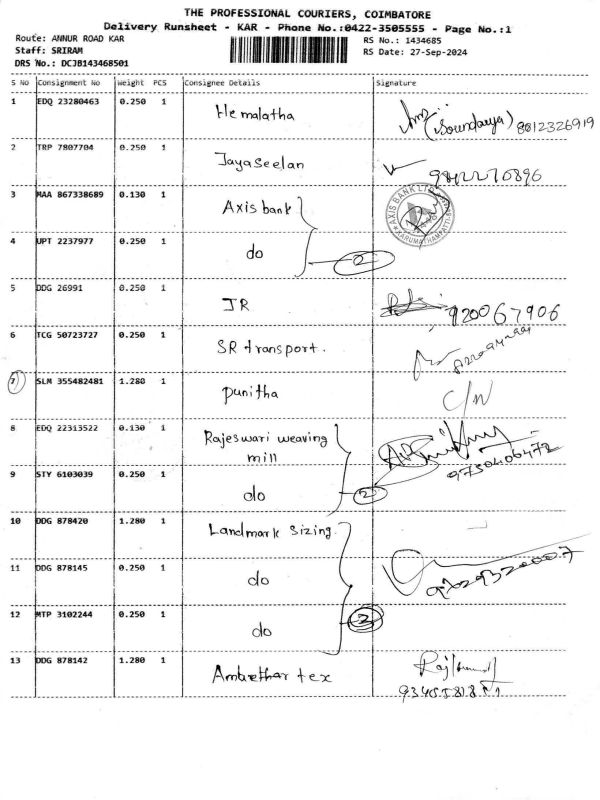 THE PROFESSIONAL COURIERS, COIMBATORE
Delivery Runsheet - KAR - Phone No.:0422-3505555 - Page No.:1
Route: ANNUR ROAD KAR
RS No.: 1434685
Staff: SRIRAM
RS Date: 27-Sep-2024
DRS No.: DCJB143468501
S No Consignment No Weight PCS Consignee Details Signature
1 EDQ 23280463 0.250 1 Hemalatha (Soundarya) 8012326919
2 TRP 7807704 0.250 1 Jayaseelan
3 MAA 867338689 0.130 1 Axis bank AXIS BANK LTD KARUMATHAMPATTI
4 UPT 2237977 0.250 1 do 2
5 DDG 26991 0.250 1 JR 920067906
6 TCG 50723727 0.250 1 SR transport.
7 SLM 355482481 1.280 1 punitha C/N
8 EDQ 22313522 0.130 1 Rajeswari weaving
mill 9750406472
9 STY 6103039 0.250 1 do 2
10 DDG 878420 1.280 1 Landmark Sizing
11 DDG 878145 0.250 1 do
12 MTP 3102244 0.250 1 do 3
13 DDG 878142 1.280 1 Ambethar tex